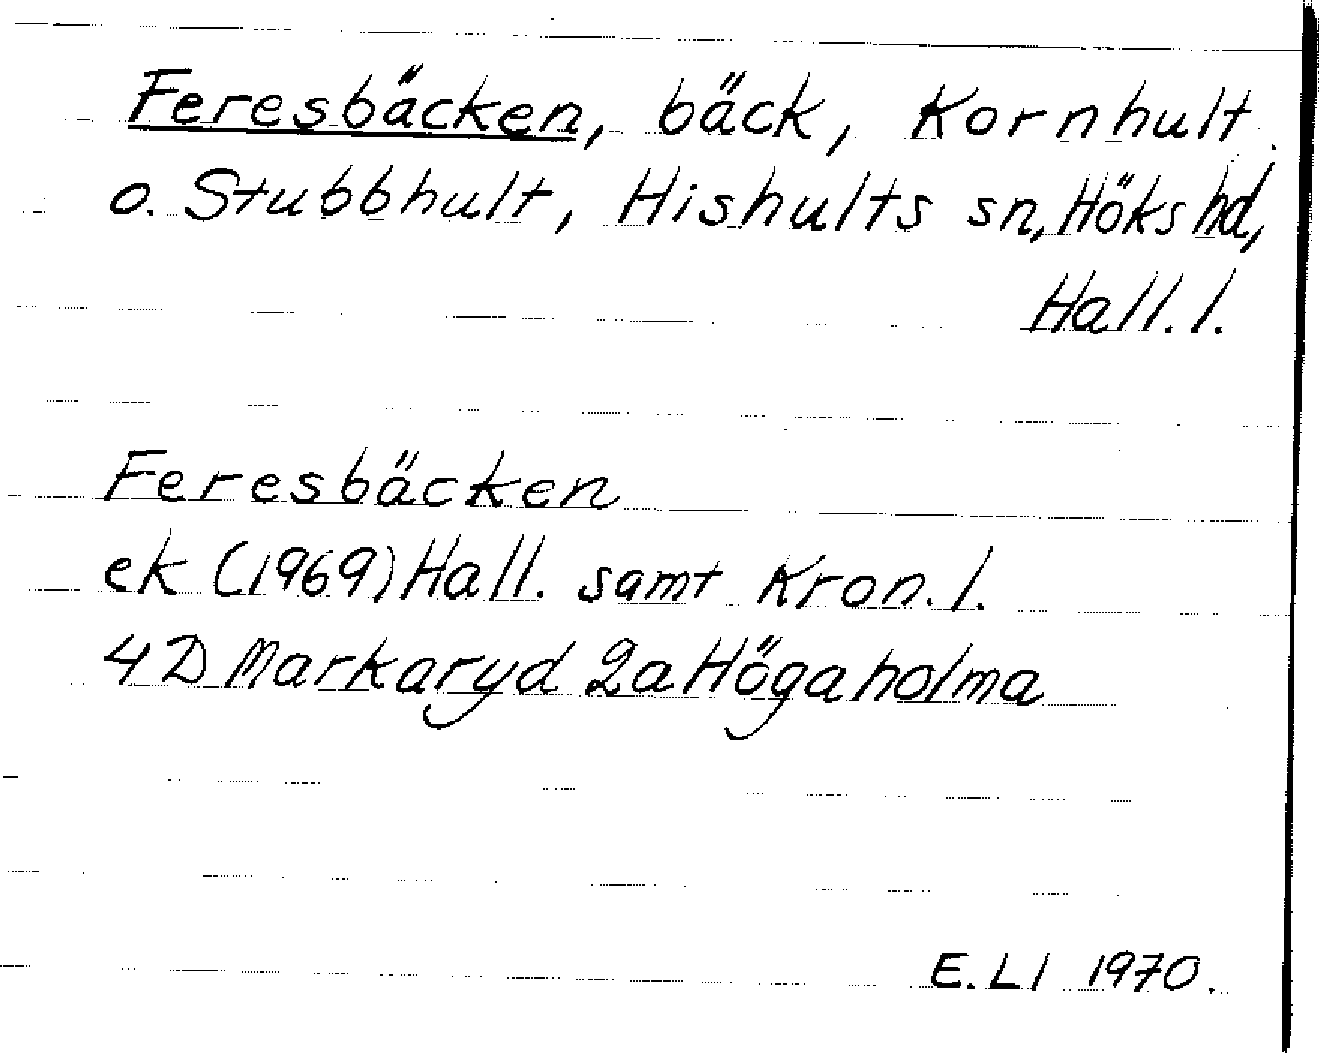 Feresbäcken, bäck, Kornhult
o. Stubbhult, Hishults sn, Höks hd,
Hall. l.
Feresbäcken
ek (1969) Hall. samt Kron. l.
4D Markaryd 2a Högaholma
E. LI 1970.